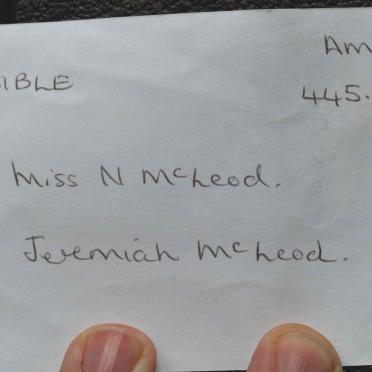 Am
IBLE
445.
Miss N McLeod.
Jeremiah McLeod.